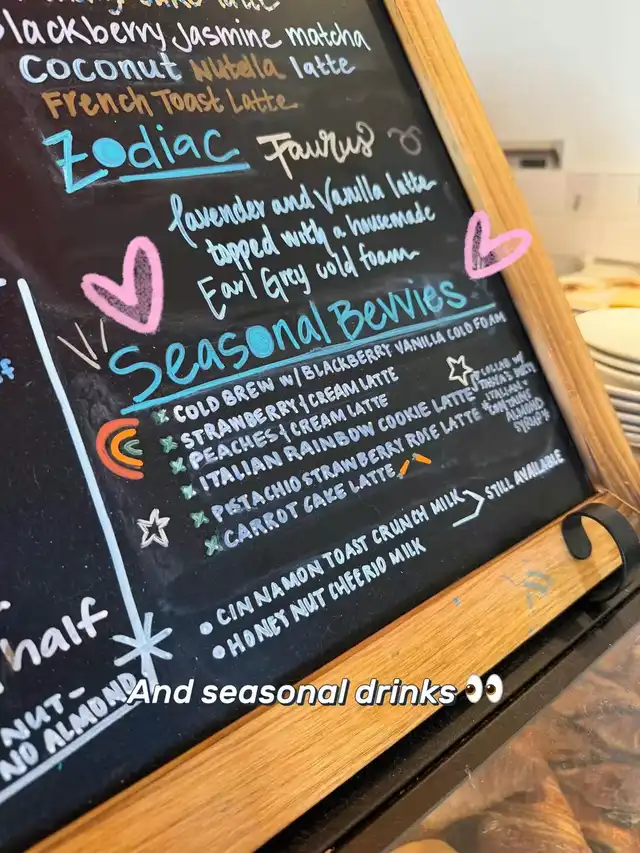 latte
Blackberry Jasmine matcha
Coconut Nutella latte
French Toast Latte
Zodiac Taurus
lavender and Vanilla latte
topped with a housemade
Earl Grey cold foam
Seasonal Bevvies
COLD BREW W/ BLACKBERRY VANILLA COLD FOAM
STRAWBERRY & CREAM LATTE
PEACHES & CREAM LATTE
ITALIAN RAINBOW COOKIE LATTE
PISTACHIO STRAWBERRY ROSE LATTE
CARROT CAKE LATTE
ITALIAN
ALMOND
SYRUP*
CINNAMON TOAST CRUNCH MILK
HONEY NUT CHEERIO MILK
STILL AVAILABLE
half
NUT-
NO ALMOND
And seasonal drinks 👀